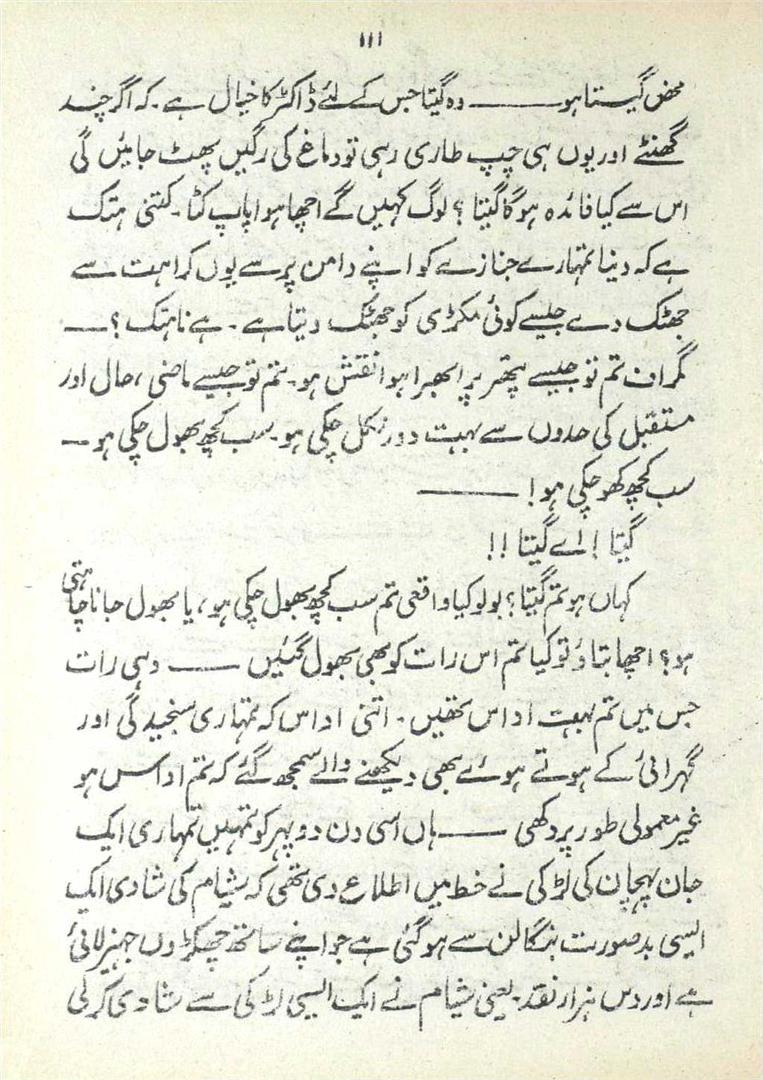 ۱۱۱
محض گیتا ہو ——— وہ گیتا جس کے لئے ڈاکٹر کا خیال ہے۔ کہ اگر چند
گھنٹے اور یوں ہی چپ طاری رہی تو دماغ کی رگیں پھٹ جائیں گی
اس سے کیا فائدہ ہوگا گیتا ؟ لوگ کہیں گے اچھا ہوا پاپ کٹا۔ کتنی ہتک
ہے کہ دنیا تمہارے جنازے کو اپنے دامن پر سے یوں کراہت سے
جھٹک دے جیسے کوئی مکڑی کو جھٹک دیتا ہے۔ ہے نا ہتک ؟ —
گر ان تم تو جیسے پتھر پر ابھرا ہوا نقش ہو۔ تم تو جیسے ماضی ، حال اور
مستقبل کی حدوں سے بہت دور نکل چکی ہو۔ سب کچھ بھول چکی ہو —
سب کچھ کھو چکی ہو! ———
گیتا ! اے گیتا !!
کہاں ہو تم گیتا ؟ بولو کیا واقعی تم سب کچھ بھول چکی ہو ، یا بھول جانا چاہتی
ہو ؟ اچھا بتاؤ تو کیا تم اس رات کو بھی بھول گئیں —— وہی رات
جس میں تم بہت اداس تھیں۔ اتنی اداس کہ تمہاری سنجیدگی اور
گہرائی کے ہوتے ہوئے بھی دیکھنے والے سمجھ گئے کہ تم اداس ہو
غیر معمولی طور پر دکھی —— ہاں اسی دن دوپہر کو تمہیں تمہاری ایک
جان پہچان کی لڑکی نے خط میں اطلاع دی تھی کہ شیام کی شادی ایک
ایسی بدصورت بنگالن سے ہو گئی ہے جو اپنے ساتھ چھکڑوں جہیز لائی
ہے اور دس ہزار نقد۔ یعنی شیام نے ایک ایسی لڑکی سے شادی کر لی